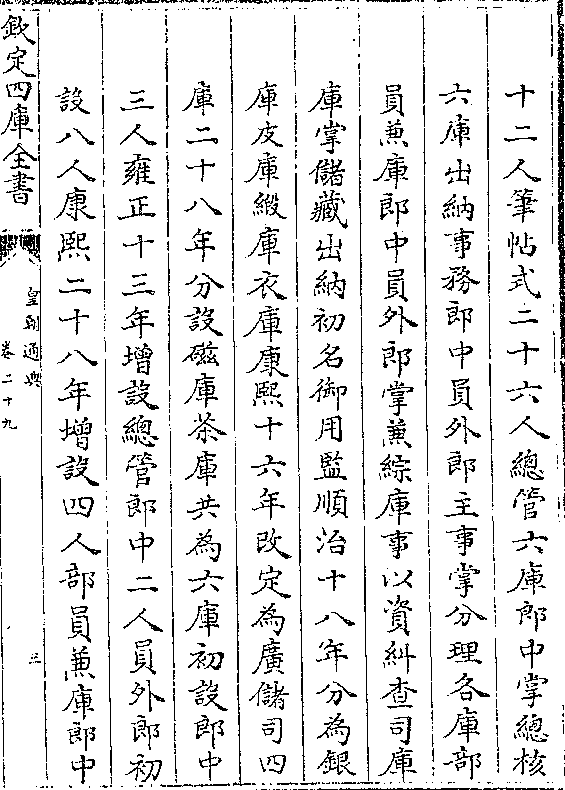 十二人筆帖式二十六人總管六庫郎中掌總核
六庫出納事務郎中員外郎主事掌分理各庫部
員兼庫郎中員外郎掌兼綜庫事以資糾查司庫
庫掌儲藏出納初名御用監順治十八年分為銀
庫皮庫緞庫衣庫康熙十六年改定為廣儲司四
庫二十八年分設磁庫茶庫共為六庫初設郎中
三人雍正十三年增設總管郎中二人員外郎初
設八人康熙二十八年增設四人部員兼庫郎中
欽定四庫全書
皇朝通典
卷二十九
三